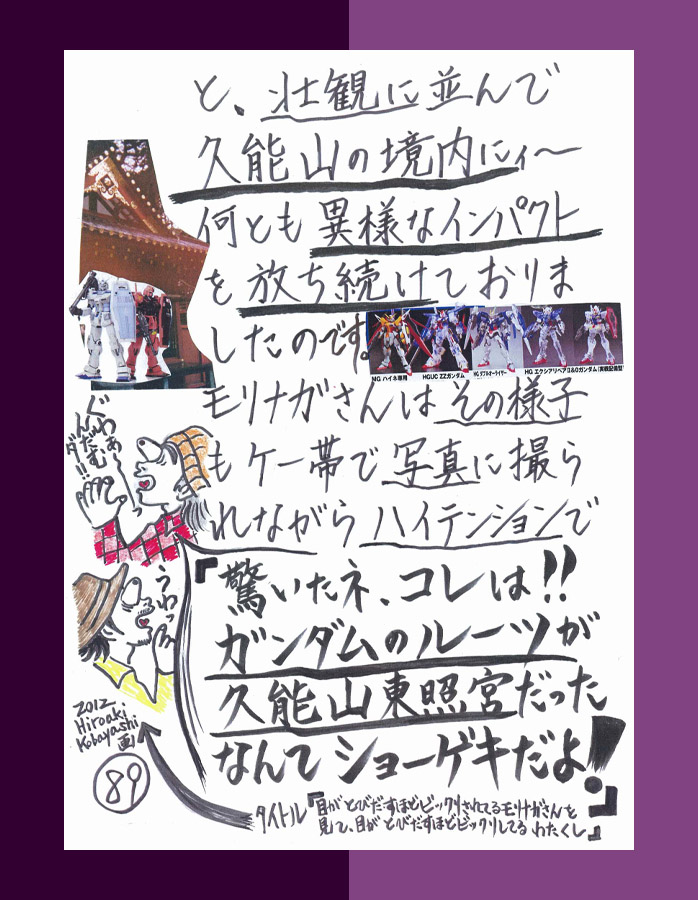 と、壮観に並んで
久能山の境内にィ～
何とも異様なインパクト
を放ち続けておりま
したのです。
MG ハイネ専用
HGUC ZZガンダム
MG ダブルオーライザー
HG エクシアリペアⅡ&Oガンダム(実戦配備型)
モリナガさんはその様子
もケー帯で写真に撮ら
れながらハイテンションで
『驚いたネ、コレは!!
ガンダムのルーツが
久能山東照宮だった
なんてショーゲキだよ!』
ぐわぁ～
んだむ
ダ!!
うわっ
2012
Hiroaki
Kobayashi
画
89
タイトル『目がとびだすほどビックリされてるモリナガさんを
見て、目がとびだすほどビックリしてるわたくし』